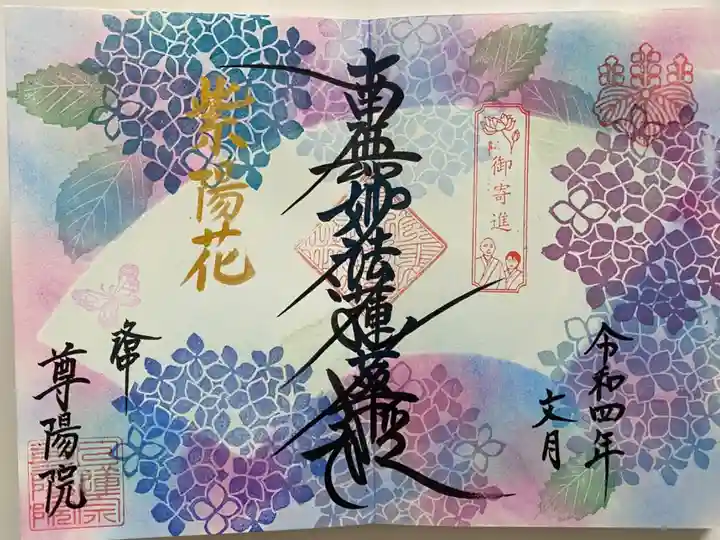 令和四年
文月
御寄進
南無妙法蓮華経
紫陽花
尊陽院